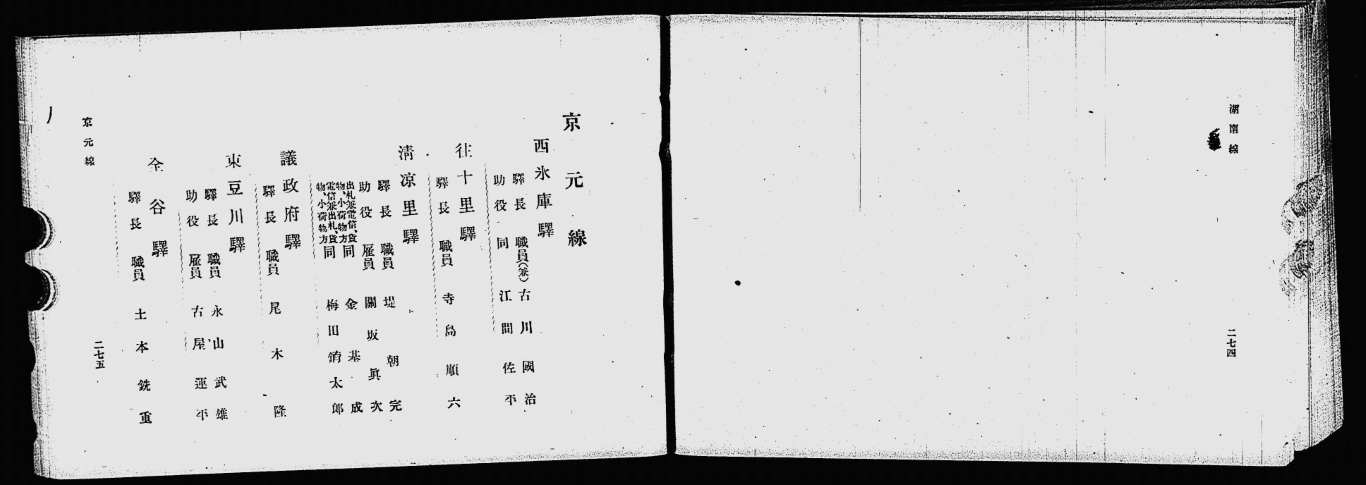 湖南線
二七四
京元線
西氷庫驛
驛長 職員(兼) 古川國治
助役 同 江間佐平
往十里驛
驛長 職員 寺島順六
淸凉里驛
驛長 職員 堤朝完
助役 雇員 關坂眞次
出札兼電信、貨物、小荷物方 同 金基成
電信兼出札、貨物、小荷物方 同 梅田銷太郎
議政府驛
驛長 職員 尾木隆
東豆川驛
驛長 職員 永山武雄
助役 雇員 古屋運平
全谷驛
驛長 職員 土本銑重
京元線
二七五